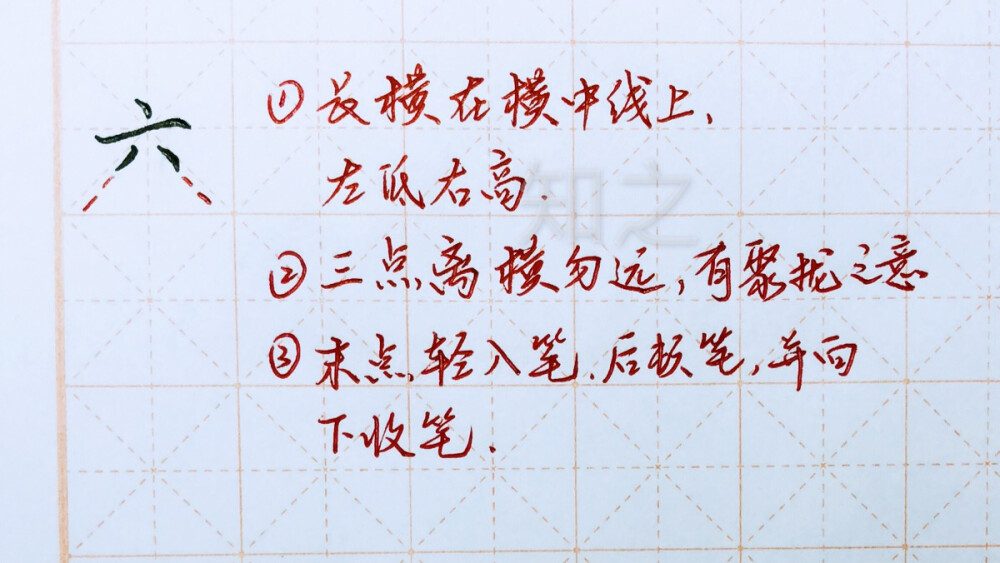 六
①长横在横中线上,
左低右高.
知之
②三点离横勿远,有聚拢之意
③末点轻入笔.后顿笔,并向
下收笔.